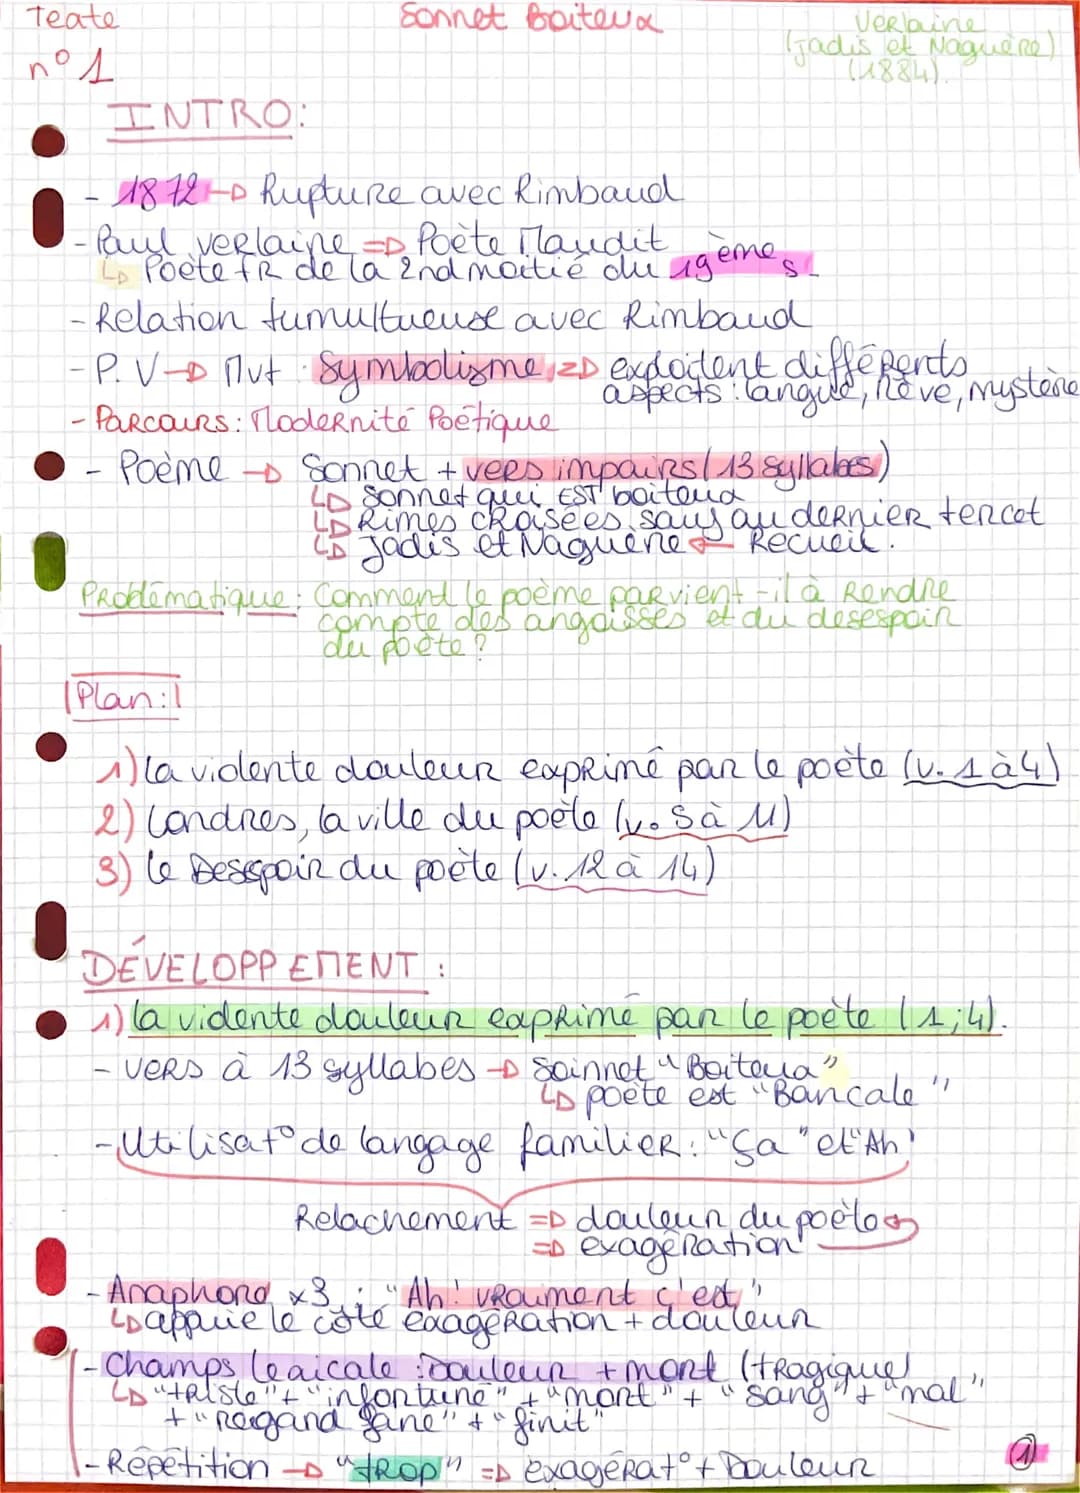 Texte
Sonnet Boiteux
Verlaine
(Jadis et Naguère)
(1884).
n° 1
INTRO:
- 1872 → Rupture avec Rimbaud
- Paul verlaine => Poète Maudit
↳ Poète FR de la 2nd moitié du 19ème s.
- Relation tumultueuse avec Rimbaud
- P. V → Mvt : Symbolisme => exploitent différents
aspects : langue, rêve, mystère
- Parcours : Modernité Poétique
- Poème → Sonnet + vers impairs (13 syllabes)
↳ Sonnet qui EST boiteux
↳ Rimes croisées sauf au dernier tercet
↳ Jadis et Naguère ← Recueil.
Problématique : Comment le poème parvient-il à Rendre
compte des angoisses et du desespoir
du poète ?
Plan :
1) la violente douleur exprimé par le poète (v. 1 à 4)
2) Londres, la ville du poète (v. 5 à 11)
3) le Desespoir du poète (v. 12 à 14)
DÉVELOPPEMENT :
1) la violente douleur exprimé par le poète (1;4).
- vers à 13 syllabes → Soinnet "Boiteux"
↳ poète est "Bancale"
- Utilisat° de langage familier : "ça" et "Ah"
Relachement => douleur du poète
=> exagération
- Anaphore x3 : "Ah! vraiment c'est"
↳ appuie le côté exagération + douleur
- Champs lexicale : Douleur + mort (tragique)
↳ "triste" + "infortuné" + "mort" + "sang" + "mal"
+ "regard fané" + "finit"
- Répétition → "trop" => exagérat° + Douleur
1